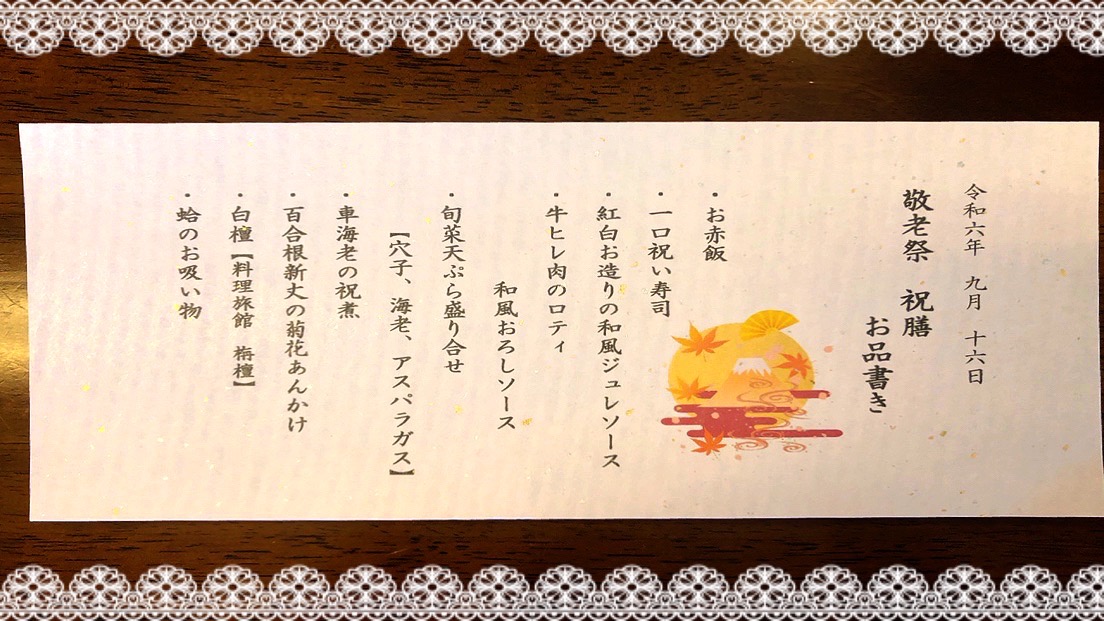 令和六年 九月 十六日
敬老祭 祝膳
お品書き
・お赤飯
・一口祝い寿司
・紅白お造りの和風ジュレソース
・牛ヒレ肉のロティ
和風おろしソース
・旬菜天ぷら盛り合せ
【穴子、海老、アスパラガス】
・車海老の祝煮
・百合根新丈の菊花あんかけ
・白檀【料理旅館 栴檀】
・蛤のお吸い物